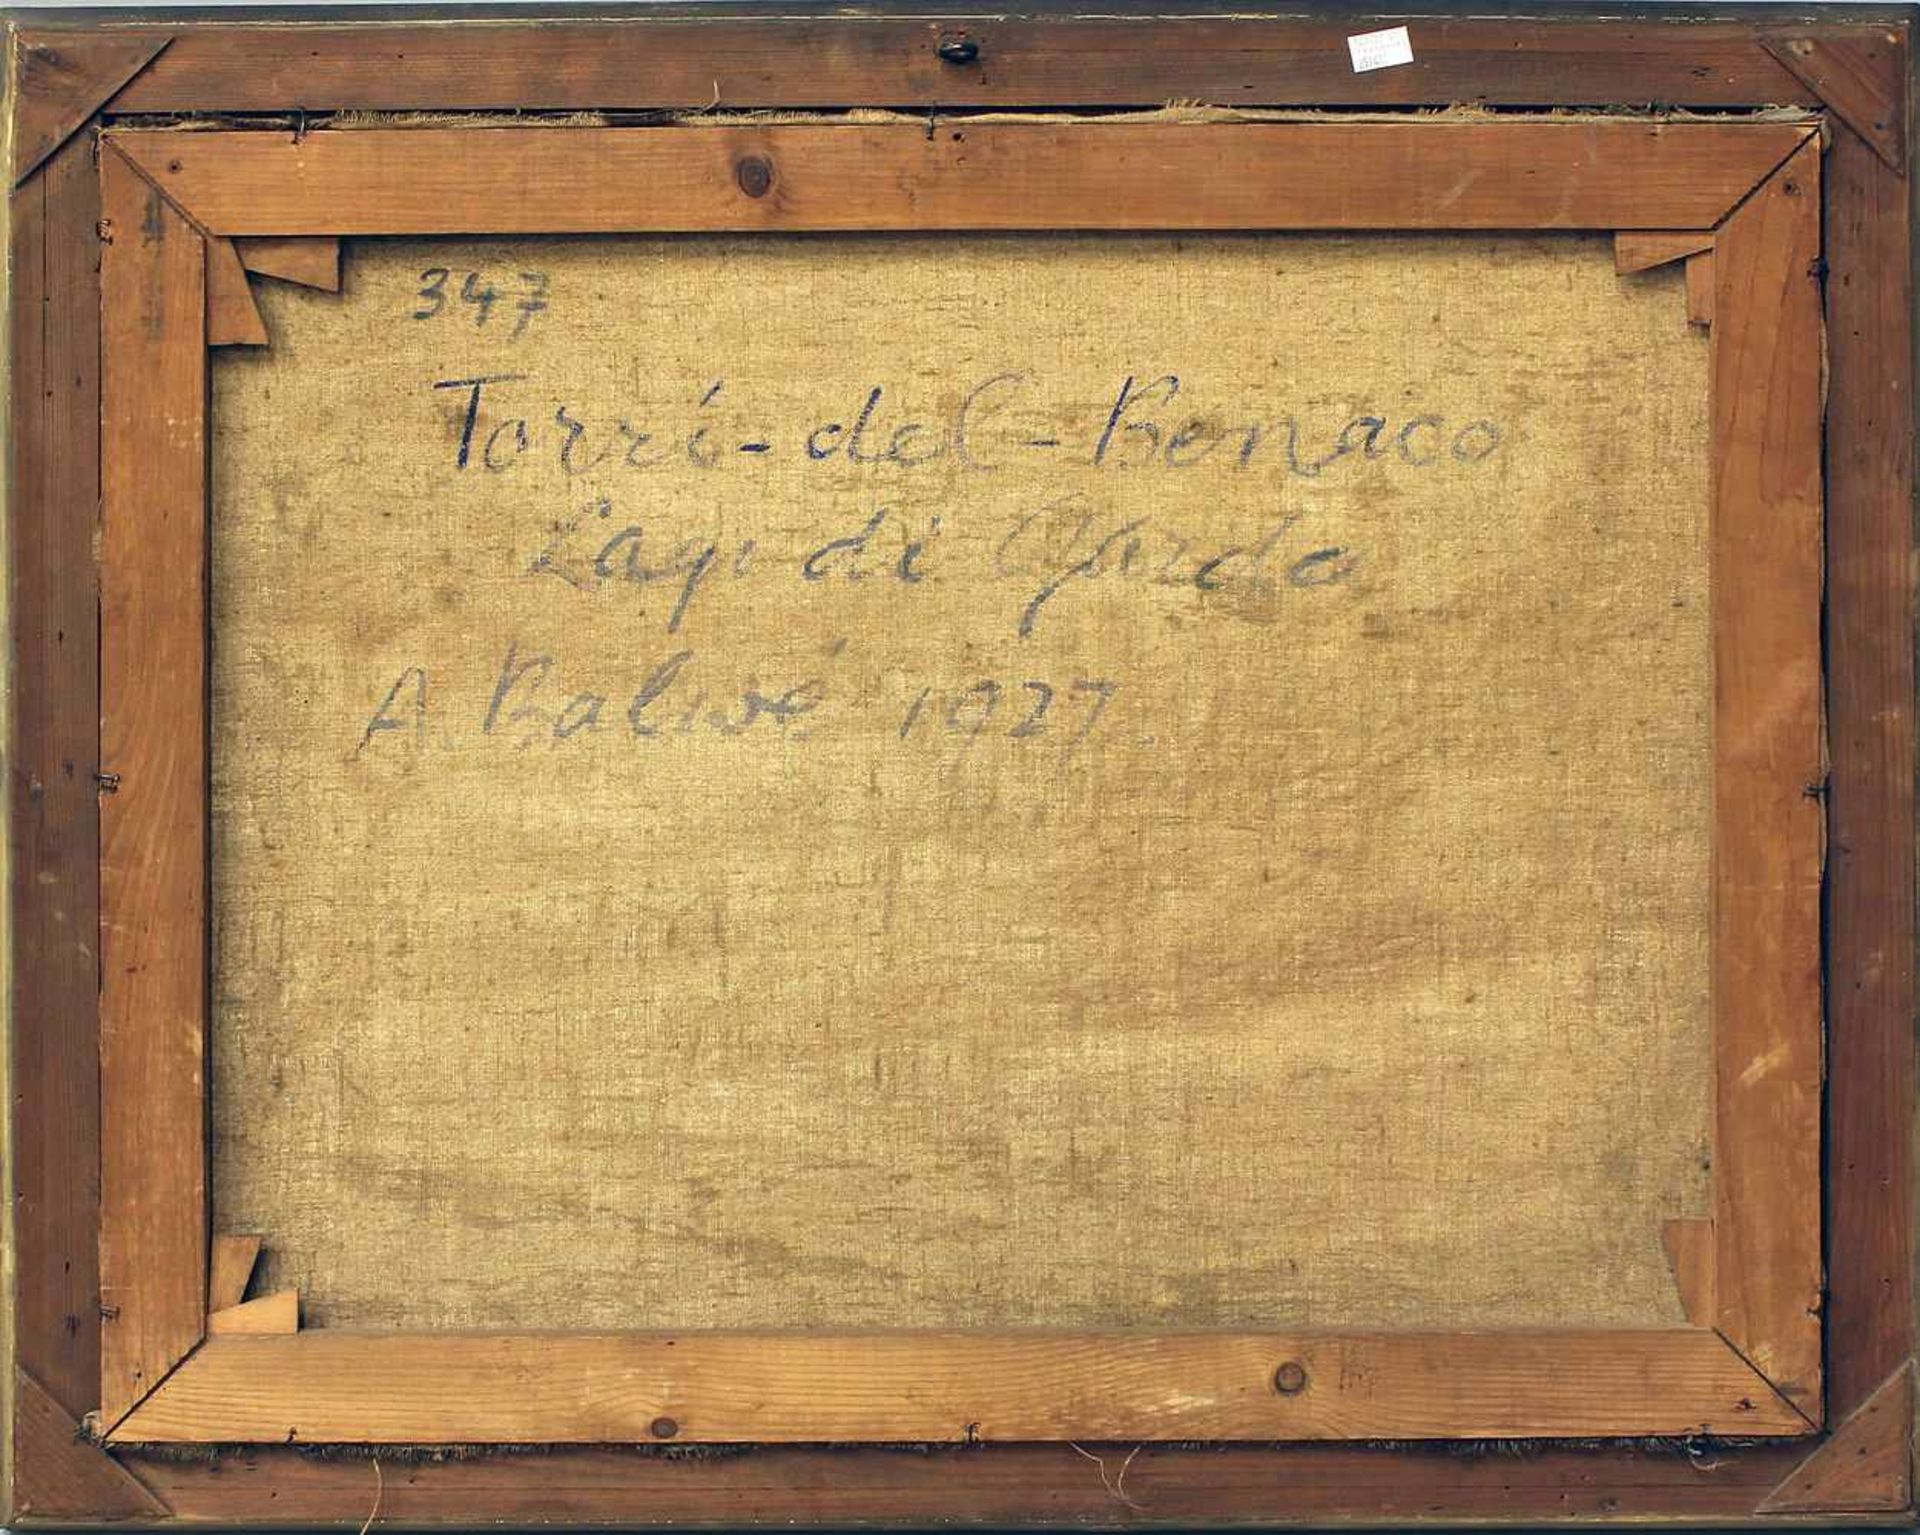 347
Torri-del-Benaco
Lago di Garda
A. Baliwé 1927.